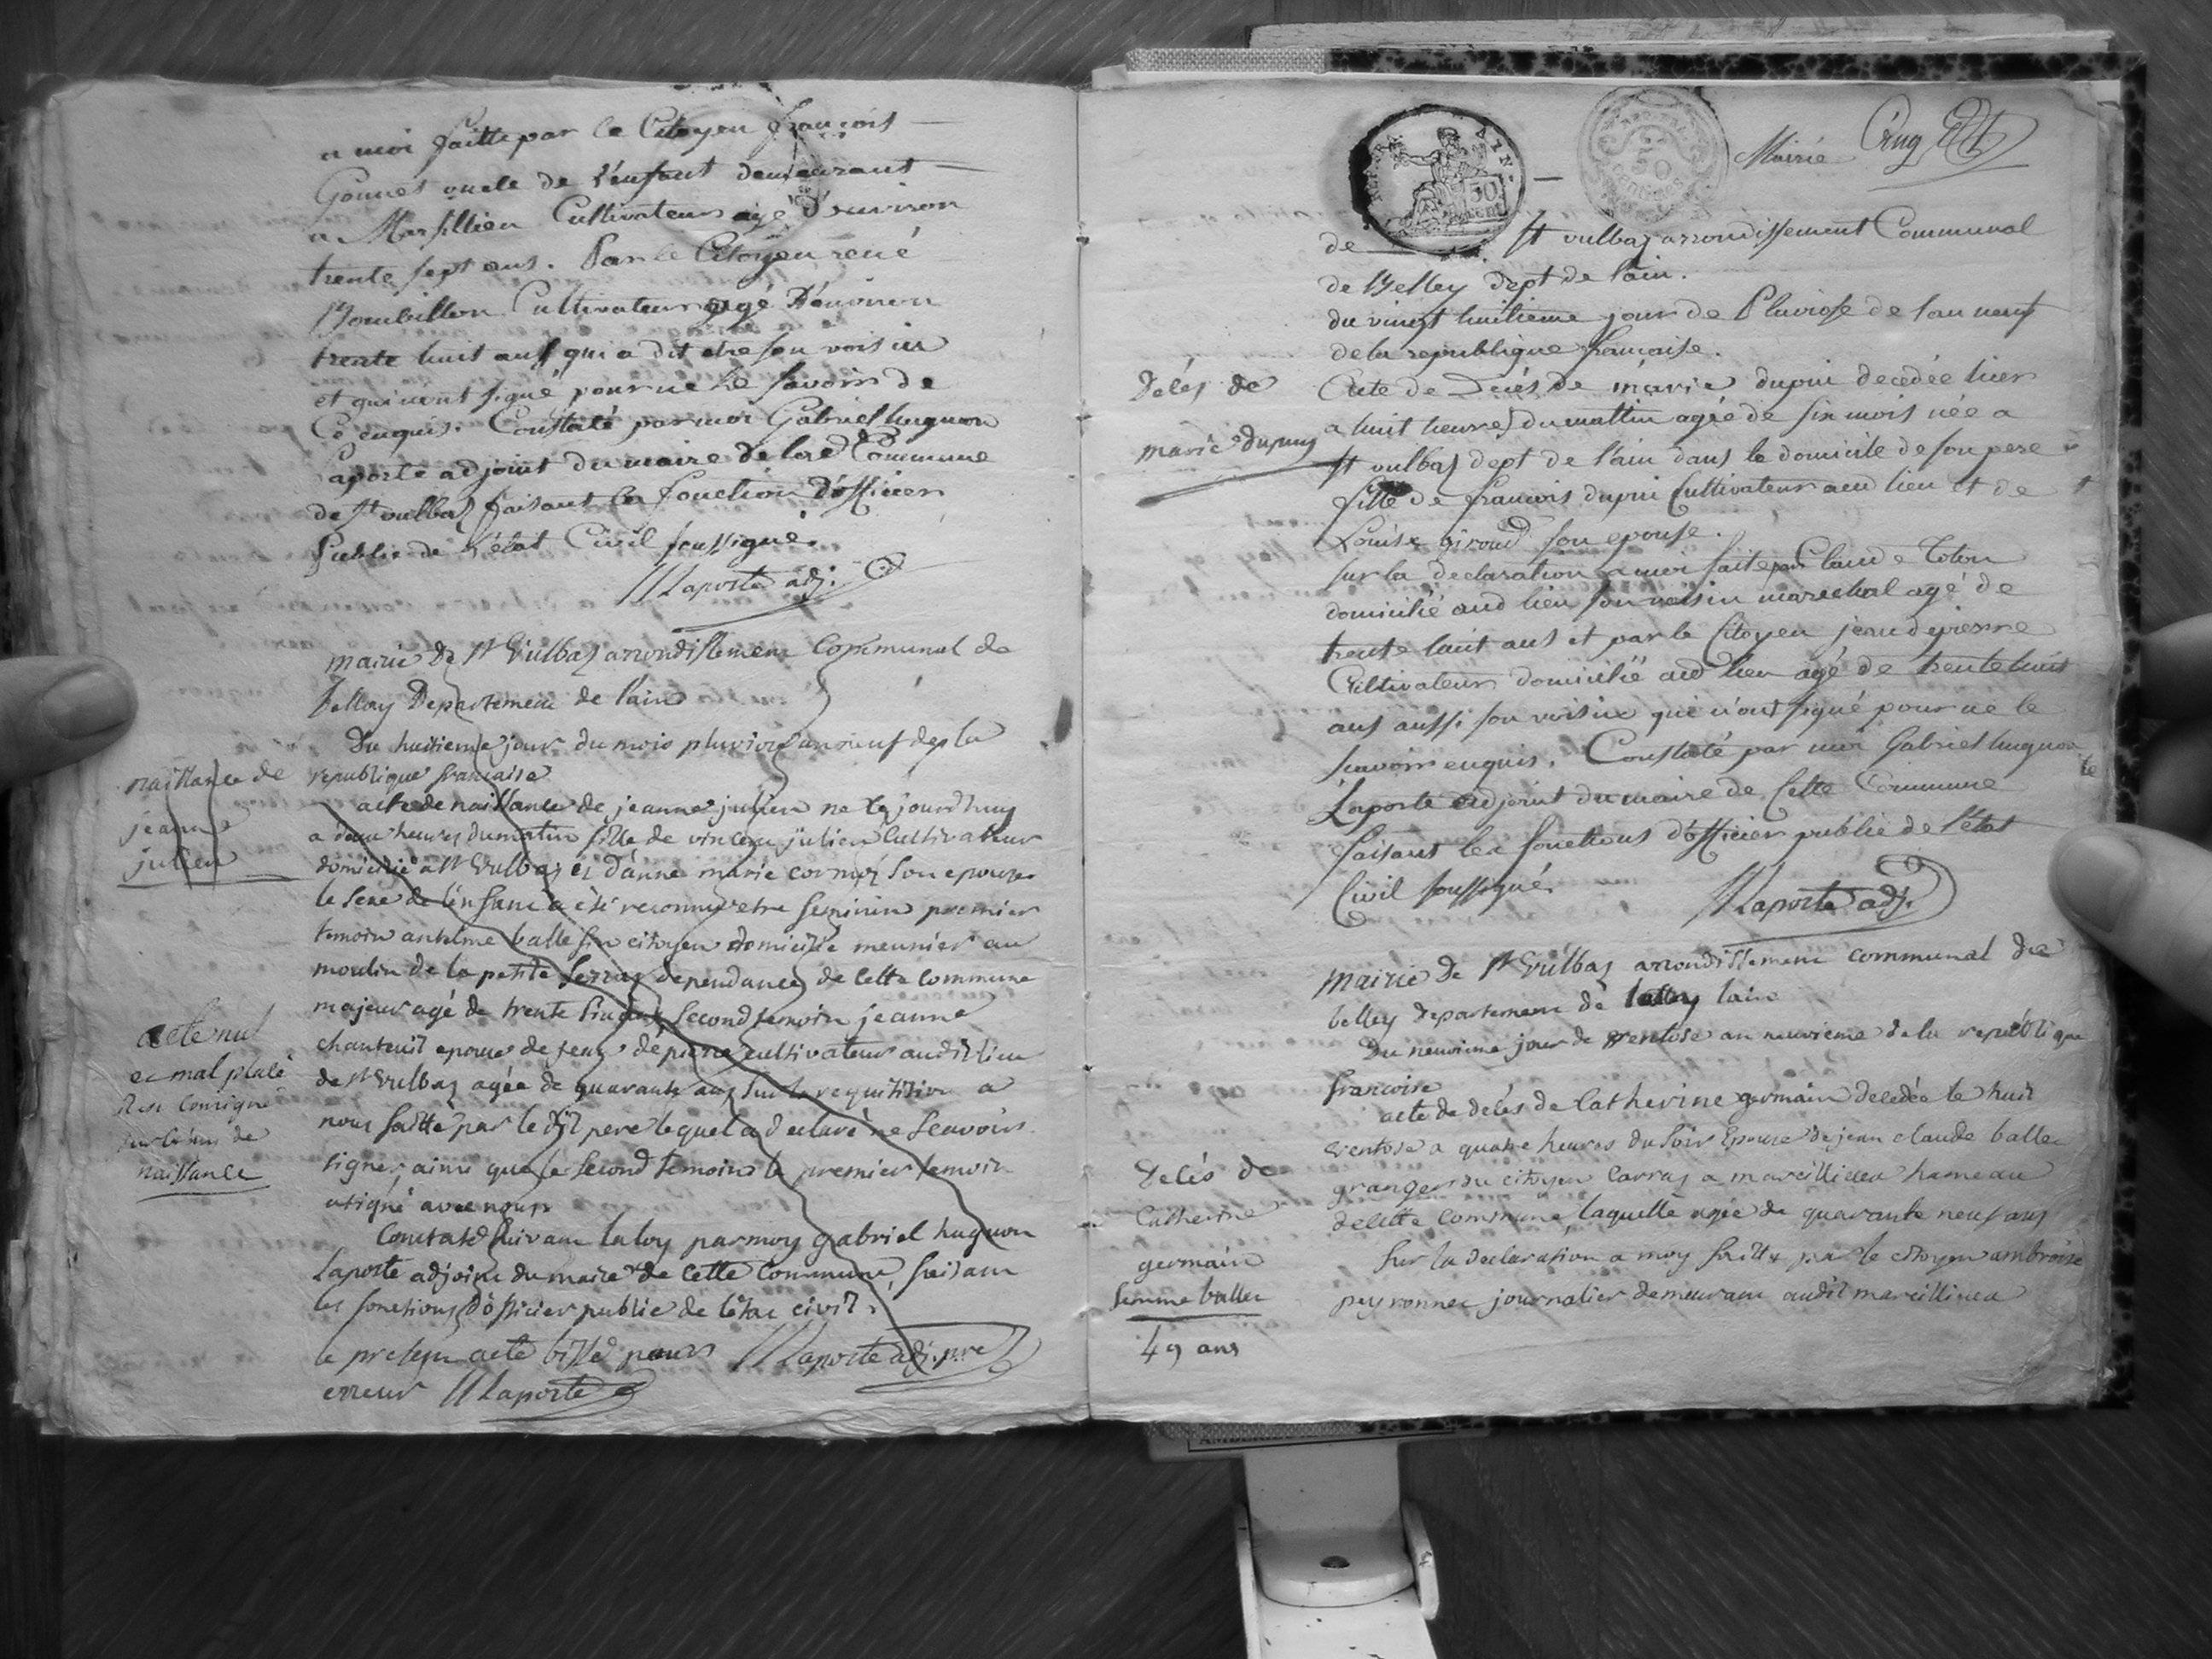 a moi faitte par le Citoyen françois
Gonnet oncle de l'enfant demeurant
a Marsillieu Cultivateur agé d'environ
trente sept ans. Par le Citoyen rené
Bombillon Cultivateur agé d'environ
trente huit ans qui a dit etre son voisin
et qui n'ont signé pour ne le savoir de
Ce enquis. Constaté par moi Gabriel huguon
Laporte adjoint du maire de lad Commune
de st vulbas faisant les fonction d'officier
Public de l'état Civil soussigné.
HLaporte adj.
mairie de st Vulbas arrondissement Communal de
belley Departement de l'ain
Du huitieme jour du mois pluviose an neuf de la
republique francaise
naissance de
jeanne
julien
acte de naissance de jeanne julien ne le jourdhuy
a deux heures du matin fille de vincent julien Cultivateur
domicilié a st Vulbas et d'anne marie cormoz son epouse
le sexe de l'enfant a été reconnu etre feminin premier
temoin antelme balle fin citoyen domicilié meunier au
moulin de la petite serraz dependances de cette commune
majeur agé de trente cinq ans, second temoin jeanne
chanteuil epouse de jean depierre cultivateur audit lieu
de st Vulbas agée de quarante ans sur la requisition a
nous faitte par le dit pere lequel a declaré ne seavoir
signer, ainsi que le second temoin le premier temoin
a signé avec nous
acte nul
et mal placé
Il est consigné
sur celui de
naissance
Constaté suivant la loy par moy gabriel huguon
laporte adjoint du maire de cette Commune, faisant
les fonctions d'officier public de l'état civil.
le present acte biffé pour HLaporte adj. pre
erreur HLaporte
REP. FRA.
50
centimes
50
Mairie
de st vulbas arrondissement Communal
de Belley dept de l'ain.
du vingt huitieme jour de Pluviose de l'an neuf
de la republique francaise.
Décés de
marie dupuy
Acte de Decés de marie dupui decédée hier
a huit heures du mattin agée de six mois née a
st vulbas dept de l'ain dans le domicile de son pere
fille de francois dupui Cultivateur aud lieu et de
Louise giroud son epouse.
sur la declaration a moi faite par Claude Toton
domicilié aud lieu son voisin marechal agé de
trente huit ans et par le Citoyen jean depierre
Cultivateur domicilié aud lieu agé de trente huit
ans aussi son voisin qui n'ont signé pour ne le
savoir enquis. Constaté par moi Gabriel huguon
Laporte adjoint du maire de Cette Commune
faisant les fonctions d'officier public de l'état
Civil soussigné.
HLaporte adj.
mairie de st Vulbas arrondissement communal de
belley departement de l'ain
Du neuvieme jour de ventose an neuvieme de la republique
francoise
Decés de
Catherine
germain
femme ballet
49 ans
acte de décès de Catherine germain decedée le huit
ventose a quatre heures du soir Epouse de jean claude ballet
granger du citoyen Carraz a marcillieu hameau
de cette commune, laquelle agée de quarante neuf ans
sur la declaration a moy faitte par le citoyen ambroise
peyronnet journalier demeurant audit marcillieu